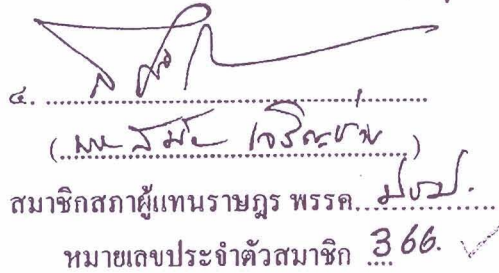 ๔. ........................................
(... เจริญช่าง ...)
สมาชิกสภาผู้แทนราษฎร พรรค... ปชป. ...
หมายเลขประจำตัวสมาชิก ....366.